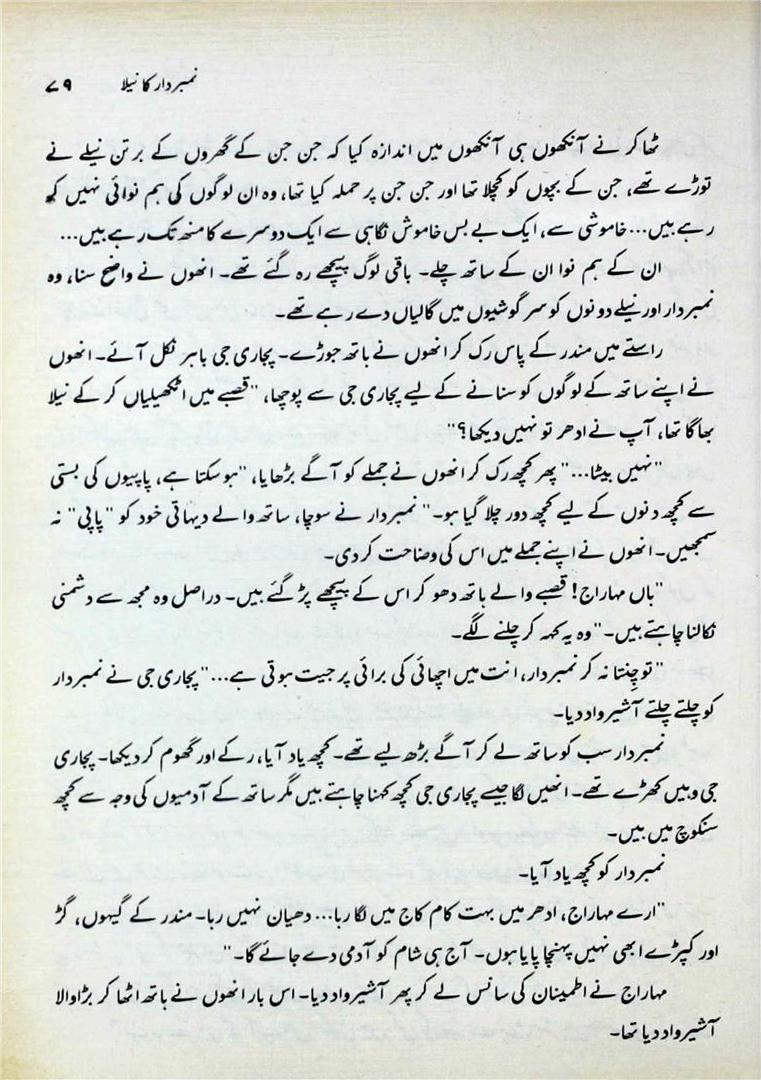 نمبردار کا نیلا ۷۹
ٹھاکر نے آنکھوں ہی آنکھوں میں اندازہ کیا کہ جن جن کے گھروں کے برتن نیلے نے
توڑے تھے، جن کے بچوں کو کچلا تھا اور جن جن پر حملہ کیا تھا، وہ ان لوگوں کی ہم نوائی نہیں کر
رہے ہیں... خاموشی سے، ایک بے بس خاموش نگاہی سے ایک دوسرے کا منھ تک رہے ہیں...
ان کے ہم نوا ان کے ساتھ چلے۔ باقی لوگ پیچھے رہ گئے تھے۔ انھوں نے واضح سنا، وہ
نمبردار اور نیلے دونوں کو سرگوشیوں میں گالیاں دے رہے تھے۔
راستے میں مندر کے پاس رک کر انھوں نے ہاتھ جوڑے۔ پجاری جی باہر نکل آئے۔ انھوں
نے اپنے ساتھ کے لوگوں کو سنانے کے لیے پجاری جی سے پوچھا، "قصبے میں اٹکھیلیاں کر کے نیلا
بھاگا تھا، آپ نے ادھر تو نہیں دیکھا؟"
"نہیں بیٹا..." پھر کچھ رک کر انھوں نے جملے کو آگے بڑھایا، "ہو سکتا ہے، پاپیوں کی بستی
سے کچھ دنوں کے لیے کچھ دور چلا گیا ہو۔" نمبردار نے سوچا، ساتھ والے دیہاتی خود کو "پاپی" نہ
سمجھیں۔ انھوں نے اپنے جملے میں اس کی وضاحت کر دی۔
"ہاں مہاراج! قصبے والے ہاتھ دھو کر اس کے پیچھے پڑ گئے ہیں۔ دراصل وہ مجھ سے دشمنی
نکالنا چاہتے ہیں۔" وہ یہ کہہ کر چلنے لگے۔
"تو چنتا نہ کر نمبردار، انت میں اچھائی کی برائی پر جیت ہوتی ہے..." پجاری جی نے نمبردار
کو چلتے چلتے آشیرواد دیا۔
نمبردار سب کو ساتھ لے کر آگے بڑھ لیے تھے۔ کچھ یاد آیا، رکے اور گھوم کر دیکھا۔ پجاری
جی وہیں کھڑے تھے۔ انھیں لگا جیسے پجاری جی کچھ کہنا چاہتے ہیں مگر ساتھ کے آدمیوں کی وجہ سے کچھ
سنکوچ میں ہیں۔
نمبردار کو کچھ یاد آیا۔
"ارے مہاراج، ادھر میں بہت کام کاج میں لگا رہا... دھیان نہیں رہا۔ مندر کے گیہوں، گڑ
اور کپڑے ابھی نہیں پہنچا پایا ہوں۔ آج ہی شام کو آدمی دے جائے گا۔"
مہاراج نے اطمینان کی سانس لے کر پھر آشیرواد دیا۔ اس بار انھوں نے ہاتھ اٹھا کر بڑا والا
آشیرواد دیا تھا۔